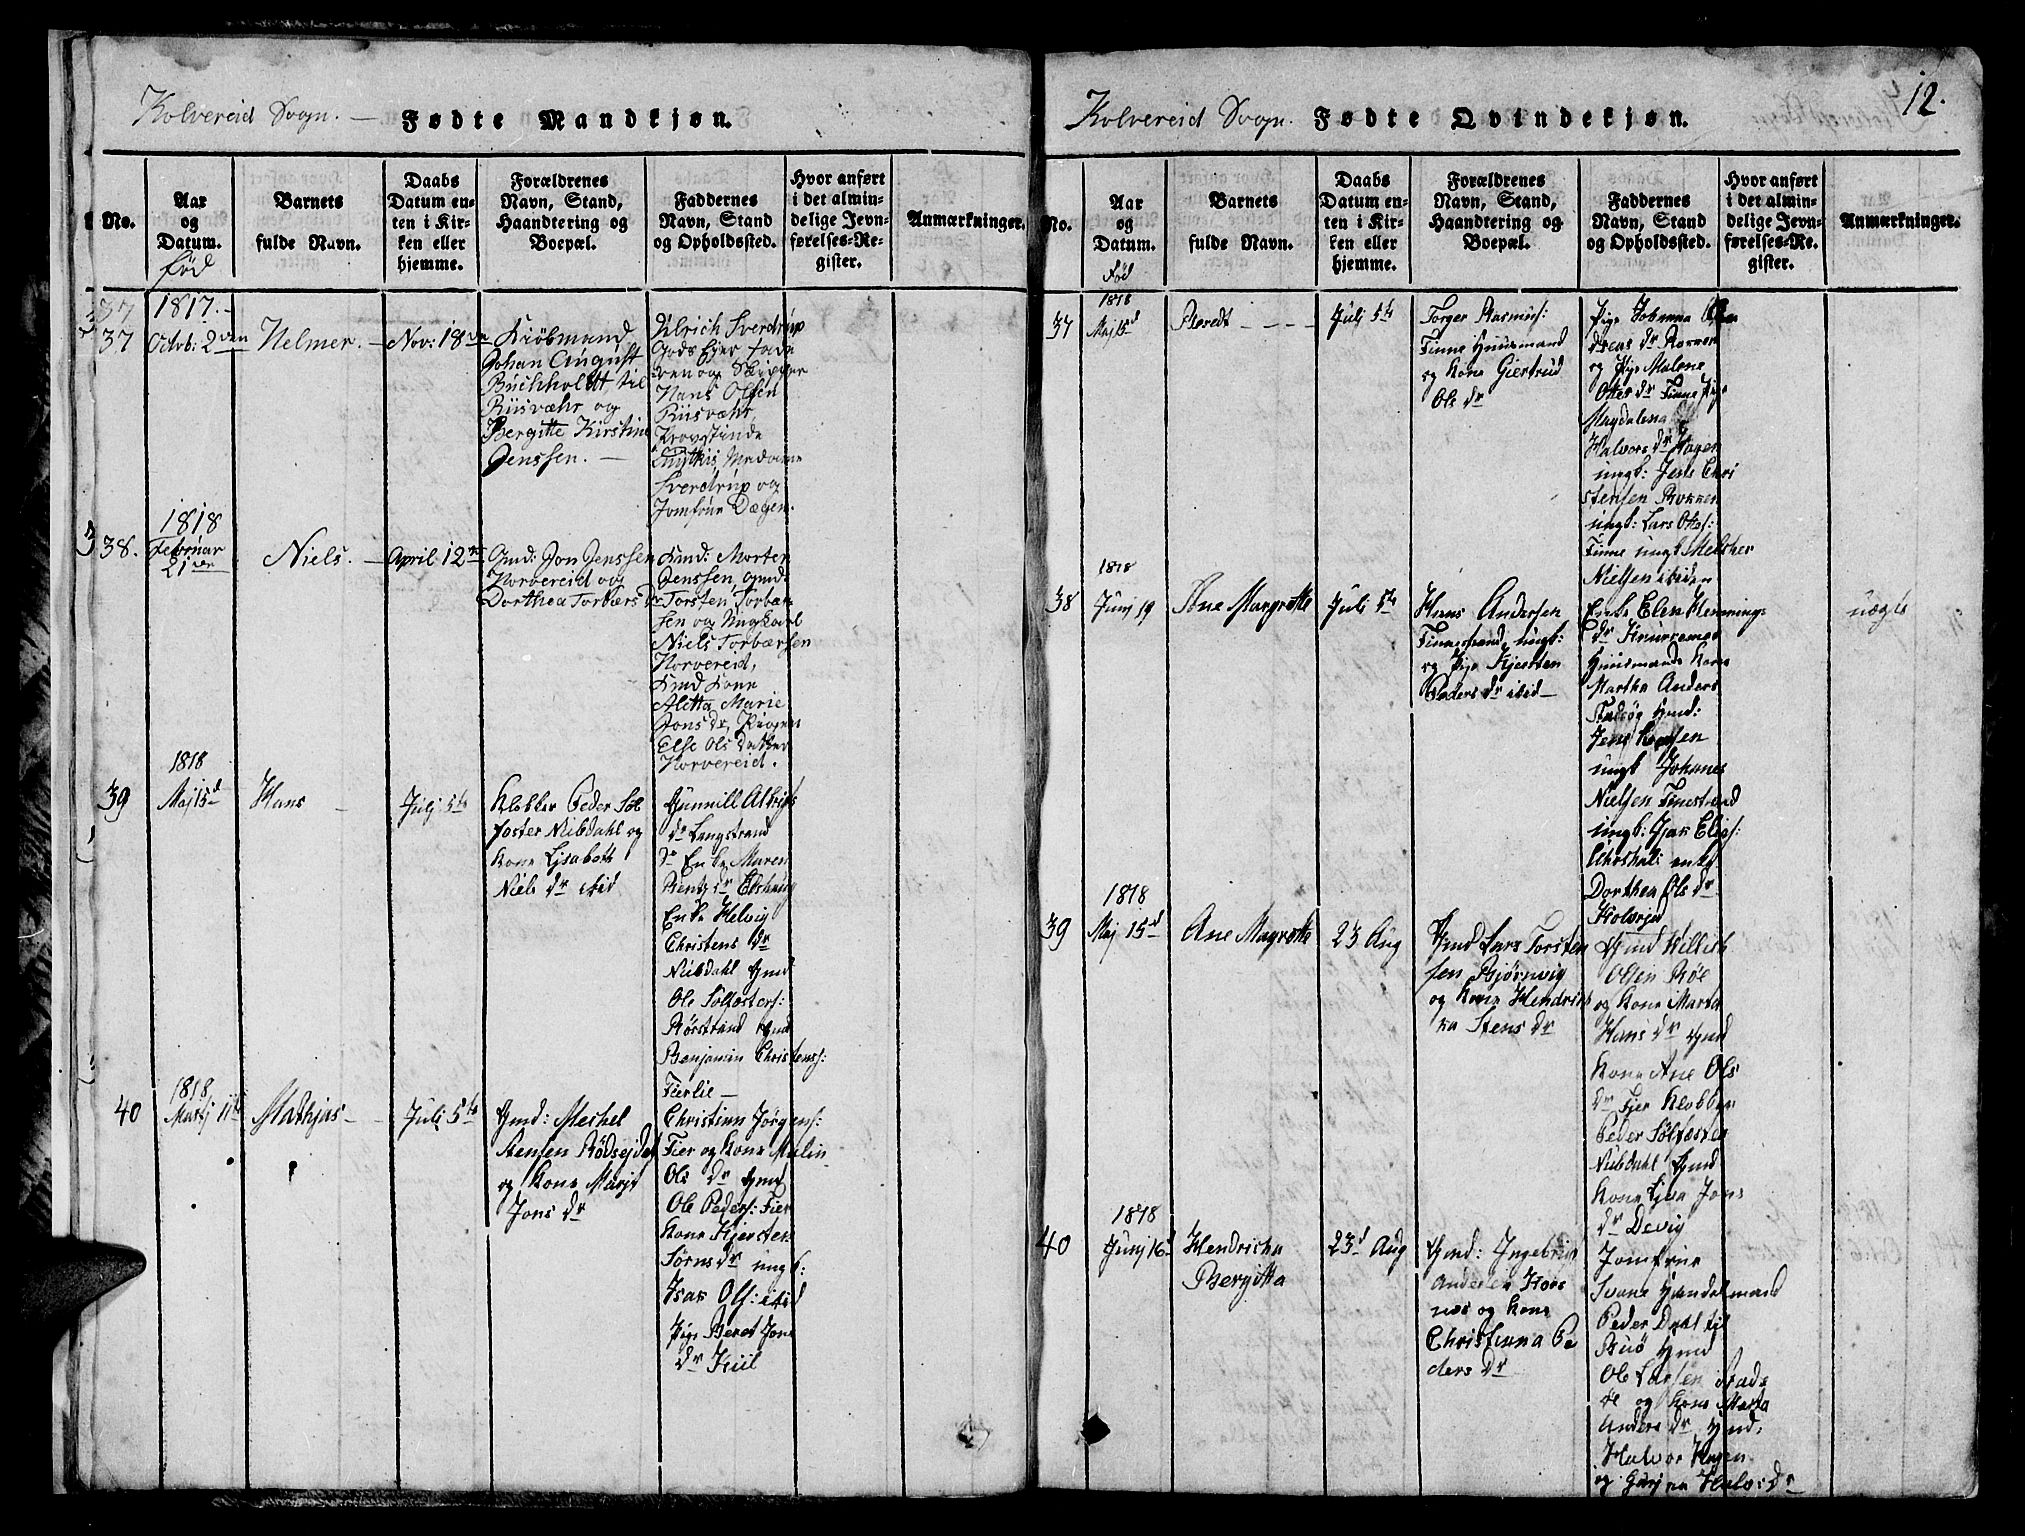 Kolvereid Sogn. — Fødte Mandkjøn.
No.
Aar og Datum.
født
Barnets fulde Navn.
Daabs Datum enten i Kirken eller hjemme.
Forældrenes Navn, Stand, Haandtering og Boepæl.
Faddernes Navn, Stand og Opholdssted.
Hvor anført i det almindelige Jevnførelses-Register.
Anmærkninger.
37
1817.
37
Octvb: 2den
Helmer. —
Nov: 18de
Kiøbmand
Johan August
Buchholdt til
Riisværhr og
Bergitte Kirstine
Jenssen. —
Ulrich Sverdrup
Gods Ejer
Hans Olsen
Riisværhr
Madame
Sverdrup og
Jomfrue Dægen.
1818
38.
Februar
21de
Niels. —
April 12te
Gmd: Jon Jenssen
Norvereid og
Dorthea Torbærs Dr
Gmd: Morten
Jenssen, gmd:
Torsten Torbær-
sen og Ungkarl
Niels Torbærsen
Norvereid,
Gmd Kone
Aletta Marie
Jons Dr, Pigen
Else Ols datter
Norvereid.
1818
39
Maj 15d
Hans —
Julj 5te
Klokker Peder Sol
foster Nubdahl og
Kone Ljsabeth
Niels dr ibid
Gunnill Albrigs
dr Langstrand
Enke Maren
Bentz dr
Enke Helvig
Christens dr
Nubdahl Gmd
Ole Solfosters:
Rösstrand Gmd
Benjamin Christens:
Fierlie —
1818
40
Martj 11te
Mathjas —
Julj 5te
Gmd: Meshel
Stensen Rödsejdet
og Kone Marjt
Jons dr
Christian Jörgens:
Fier og Kone Malin
Ols dr Gmd
Ole Peders: Fier
Kone Kjersten
Sörns dr ungk:
Isak Ols: ibid
Pige Beret Jons
dr Kiil
Kolvereid Sogn. Fødte Qvindekjøn.
12.
No.
Aar og Datum.
Fød
Barnets fulde Navn.
Daabs Datum enten i Kirken eller hjemme.
Forældrenes Navn, Stand, Haandtering og Boepæl.
Faddernes Navn, Stand og Opholdssted.
Hvor anført i det almindelige Jevnførelses-Re. gister.
Anmærkninger.
1818
37
Maj 15d
Beredt - - - -
Julj 5te
Torger Rasmus:
Finne Huusmand
og Kone Giertrud
Ols dr
Pige Johanna
dreas dr Rokken
og Pige Malene
Otes dr Finne Pige
Magdalena
Halvors dr Hagen
ungk: Jens Chri
stensen Rokken
ungk: Lars Otes:
Finne ungk Melcher
Nielsen ibiden
1818
38
Junj 19
Ane Margrette
Julj 5te
Hans Andersen
Finnestrand ungk:
og Pige Kjersten
Peders dr ibid —
Enke Elen Henning-
dr
Huusmands Kone
Martha Anders
Gmd:
Jens
ungk Johanes
Nielsen Finestrand
ungk: Isak Elias:
enke
Dorthea Ols dr
Kolverjd
uægte
1818
39
Maj 15d
Ane Magrette
23 Aug
Gmd Lars Torsten
sen Bjørnvig
og Kone Hendrik
ka Stens dr
Gmd Willich
Olsen Röe
og Kone Marta
Hans dr Gmd
Kone Ane Ols
dr Fjer Klokker
Peder Solfoster
Nubdahl Gmd
Kone Ljsa Jons
dr Devig
1818
40
Junj 16d
Hendricka
Bergitta
23d Aug
Gmd: Ingebrigt
Andersen Hors
næs og Kone
Christianna Pe
ders dr
Jomfrue
Svane Handelsmand
Peder Dahl til
Gmd
Ole Larsen Stads
öe og Kone Marta
Anders dr Gmd:
Halvor Hagen
og Gurj na Halvs: dr